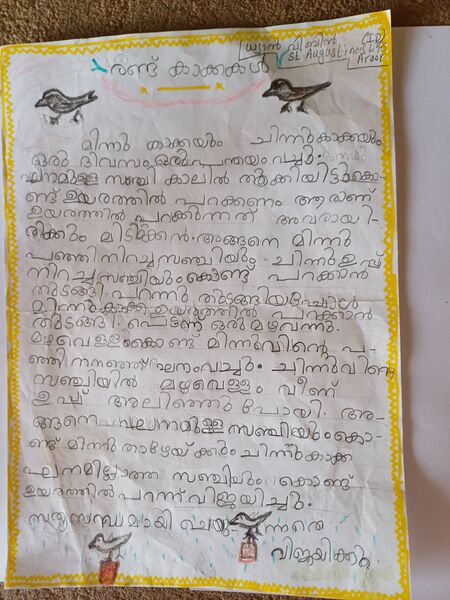 ധ്യാൻ വിബിൻ (ID)
St. Augustine's LPS
Aroor
രണ്ട് കാക്കകൾ
മിന്നു കാക്കയും ചിന്നു കാക്കയും
ഒരു ദിവസം ഒരു പന്തയം വച്ചു.
ഘനമുള്ള സഞ്ചി കാലിൽ തൂക്കിയിട്ടുകൊ-
ണ്ട് ഉയരത്തിൽ പറക്കണം ആരാണ്
ഉയരത്തിൽ പറക്കുന്നത് അവരായി-
രിക്കും മിടുക്കൻ. അങ്ങനെ മിന്നു
പഞ്ഞി നിറച്ച സഞ്ചിയും. ചിന്നു ഉപ്പ്
നിറച്ച സഞ്ചിയും കൊണ്ട് പറക്കാൻ
തുടങ്ങി. പറന്നു തുടങ്ങിയപ്പോൾ
മിന്നുകാക്ക ഉയരത്തിൽ പറക്കാൻ
തുടങ്ങി. പെട്ടെന്ന് ഒരു മഴ വന്നു.
മഴവെള്ളംകൊണ്ട് മിന്നുവിന്റെ പ-
ഞ്ഞി നനഞ്ഞ് ഘനംവച്ചു. ചിന്നുവിന്റെ
സഞ്ചിയിൽ മഴവെള്ളം വീണ്
ഉപ്പ് അലിഞ്ഞു പോയി. അ-
ങ്ങനെ ഘനമുള്ള സഞ്ചിയുംകൊ-
ണ്ട് മിന്നു താഴേയ്ക്കും ചിന്നു കാക്ക
ഘനമില്ലാത്ത സഞ്ചിയും കൊണ്ട്
ഉയരത്തിൽ പറന്ന് വിജയിച്ചു.
സത്യസന്ധമായി
വിജയിക്കൂ.